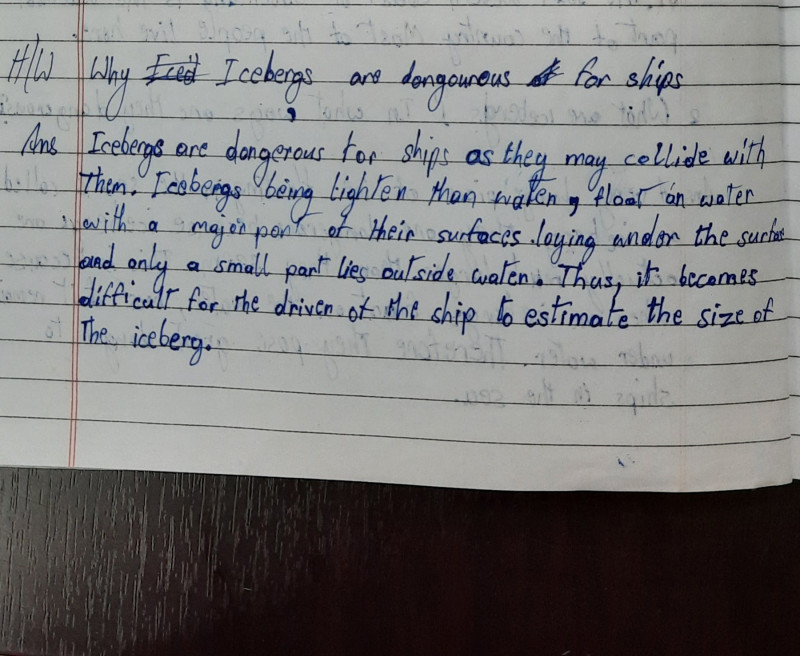 H/W Why Icebergs are dongourous for ships
Ans Icebergs are dangerous for ships as they may collide with
them. Icebergs being lighter than water, float on water
with a major part of their surfaces laying under the surface
and only a small part lies outside water. Thus, it becomes
difficult for the driver of the ship to estimate the size of
the iceberg.